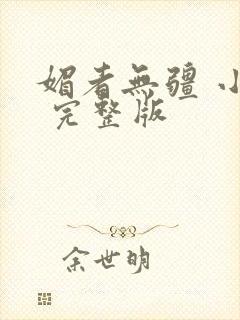 媚者無疆 小
完整版
余世明